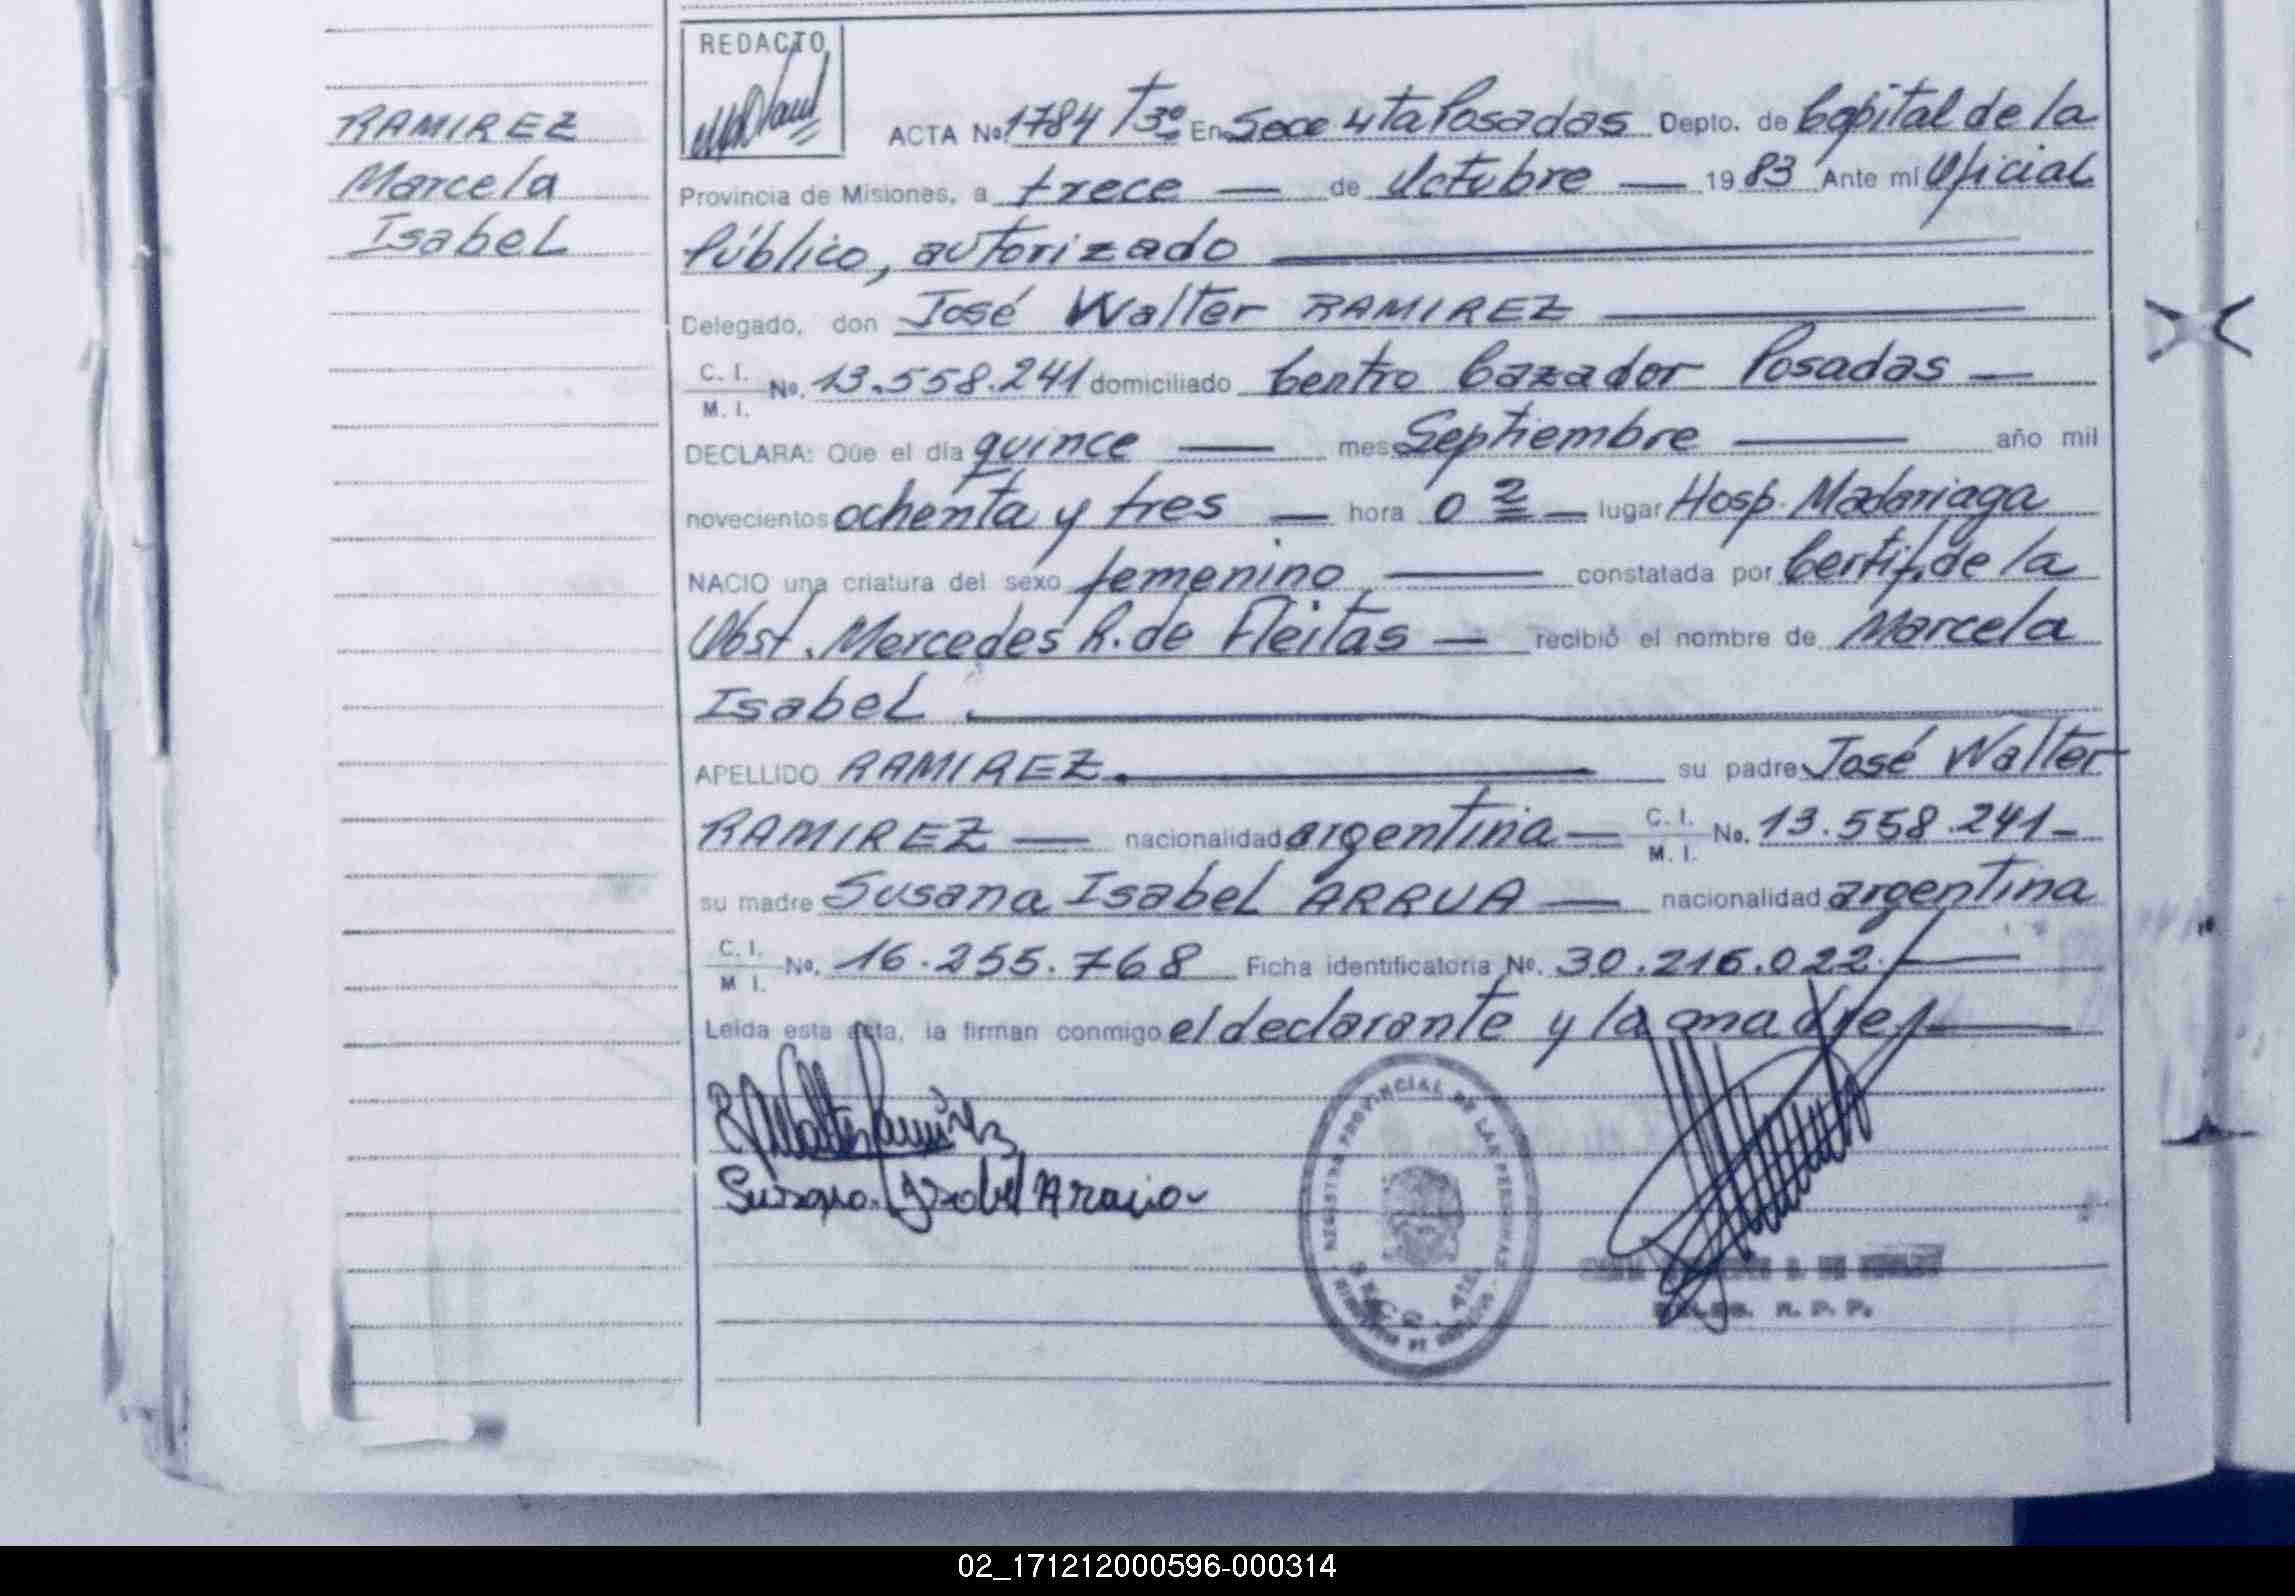 RAMIREZ
Marcela
Isabel
REDACTO
ACTA No. 1784 T3º En Secc 4ta Posadas Depto. de Capital de la
Provincia de Misiones, a trece — de Octubre — 1983 Ante mi Oficial
Público, autorizado
Delegado, don José Walter RAMIREZ
C. I.
M. I. No. 13.558.241 domiciliado Centro Cazador Posadas —
DECLARA: Qüe el día quince — mes Septiembre — año mil
novecientos ochenta y tres — hora 02 — lugar Hosp. Madariaga
NACIO una criatura del sexo femenino — constatada por Certif. de la
Obst. Mercedes R. de Fleitas — recibió el nombre de Marcela
Isabel.
APELLIDO RAMIREZ. su padre José Walter
RAMIREZ — nacionalidad argentina — C. I. M. I. No. 13.558.241 —
su madre Susana Isabel ARRUA — nacionalidad argentina
C. I. M I. No. 16.255.768 Ficha identificatoria No. 30.216.022.
Leida esta acta, la firman conmigo el declarante y la madre
Walter Ramirez
Susana Isabel
REGISTRO PROVINCIAL DE LAS PERSONAS
R. P. P.
02_171212000596-000314